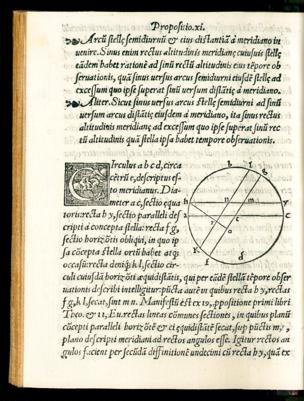 Propositio.xi.
Arcũ stellę semidiurnũ et eius distantiã à meridiano in
uenire. Sinus enim rectus altitudinis meridianę cuiusuis stellę
eãdem habet rationẽ ad sinũ rectũ altitudinis eius tẽpore ob
seruationis, quã sinus uersus arcus semidiurni eiusdẽ stellę ad
excessum quo ipse superat sinũ uersum distãtię à meridiano.
Aliter. Sicut sinus uersus arcus stellę semidiurni ad sinũ
uersum arcus distãtię eiusdem à meridiano, ita sinus rectus
altitudinis meridianę ad excessum quo ipse superat sinũ rec
tũ altitudinis quã stella ipsa habet tempore obseruationis.
Circulus a b c d, circa
cẽtrũ e, descriptus es-
to meridianus. Dia-
meter a c, sectio equa
toris: recta b y, sectio paralleli de-
scripti à concepta stella: recta f g,
sectio horizõtis obliqui, in quo ip
sa cõcepta stella ortũ habet atq;
occasũ: recta deniq; k l, sectio cir-
culi cuiusdã horizõti ęquidistãtis, qui per eãdẽ stellã tẽpore obser
uationis describi intelligitur: pũcta autẽ in quibus recta b y, rectas
f g, k l, secat, sint m n. Manifestũ est ex 19, ppositione primi libri
Theo. & 11, Eu. rectas lineas cõmunes sectiones, in quibus planũ
cõcepti paralleli horizõtẽ & ei ęquidistãtẽ secat, sup pũctis m,
plano descripti meridiani ad rectos angulos esse. Igitur rectos an
gulos facient per secũdã diffinitionẽ undecimi cũ recta b y, quæ ex